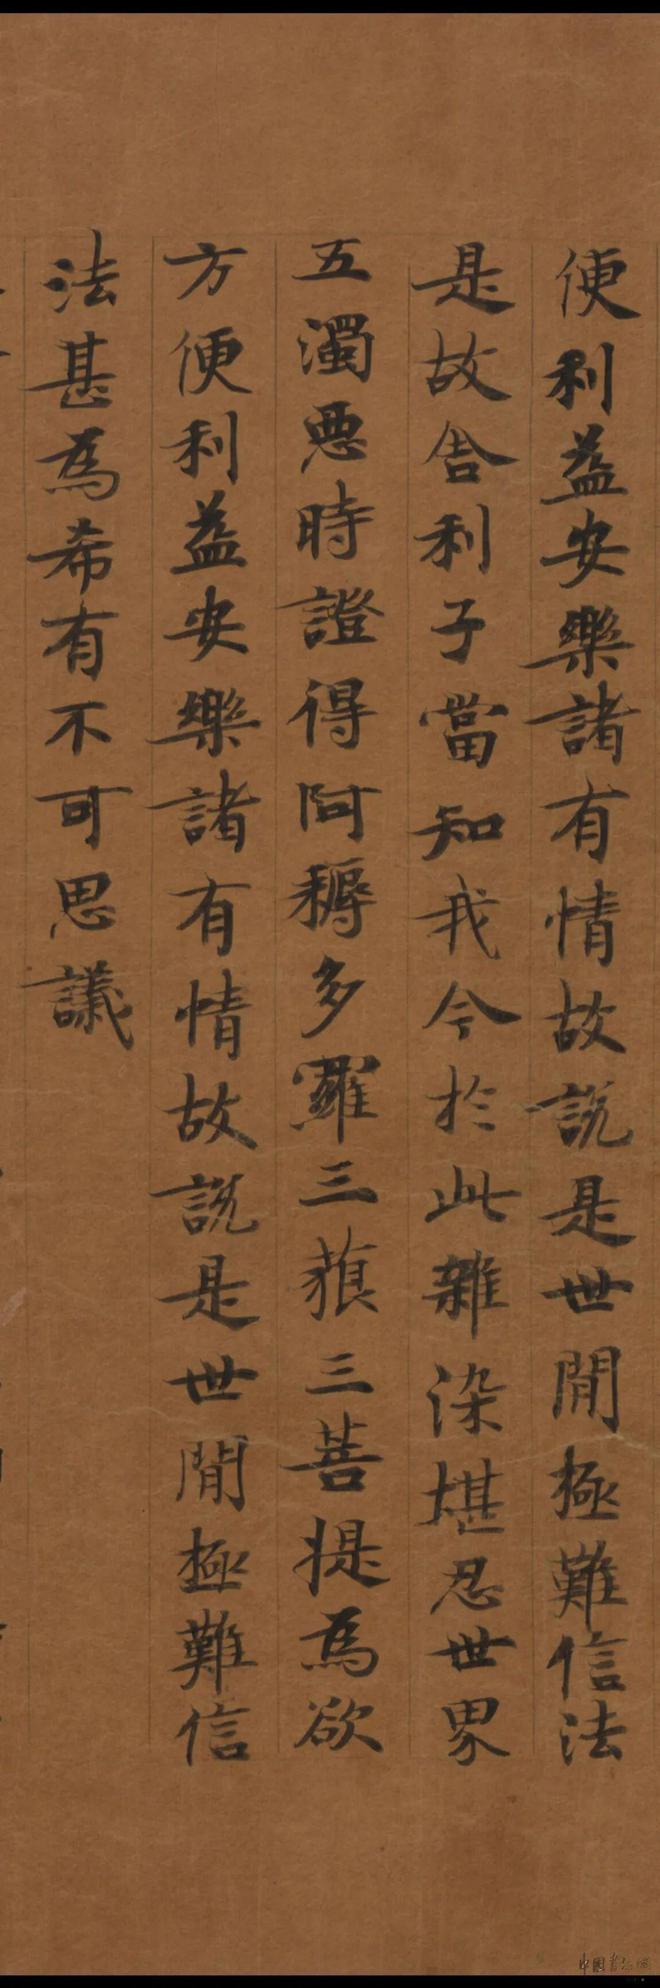 便利益安樂諸有情故說是世間極難信法
是故舍利子當知我今於此雜染堪忍世界
五濁惡時證得阿耨多羅三藐三菩提為欲
方便利益安樂諸有情故說是世間極難信
法甚為希有不可思議